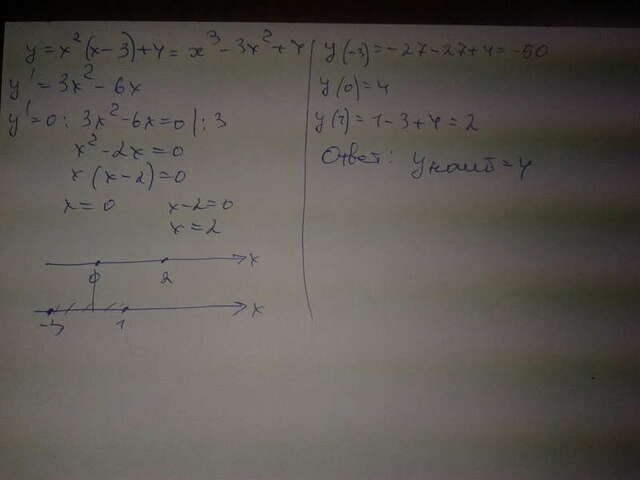 y = x²(x-3)+4 = x³-3x²+4
y' = 3x²-6x
y'=0: 3x²-6x=0 | :3
x²-2x=0
x(x-2)=0
x=0 x-2=0
x=2
0 2 x
-3 1 x
y(-3)=-27-27+4=-50
y(0)=4
y(1)=1-3+4=2
Ответ: y наиб=4